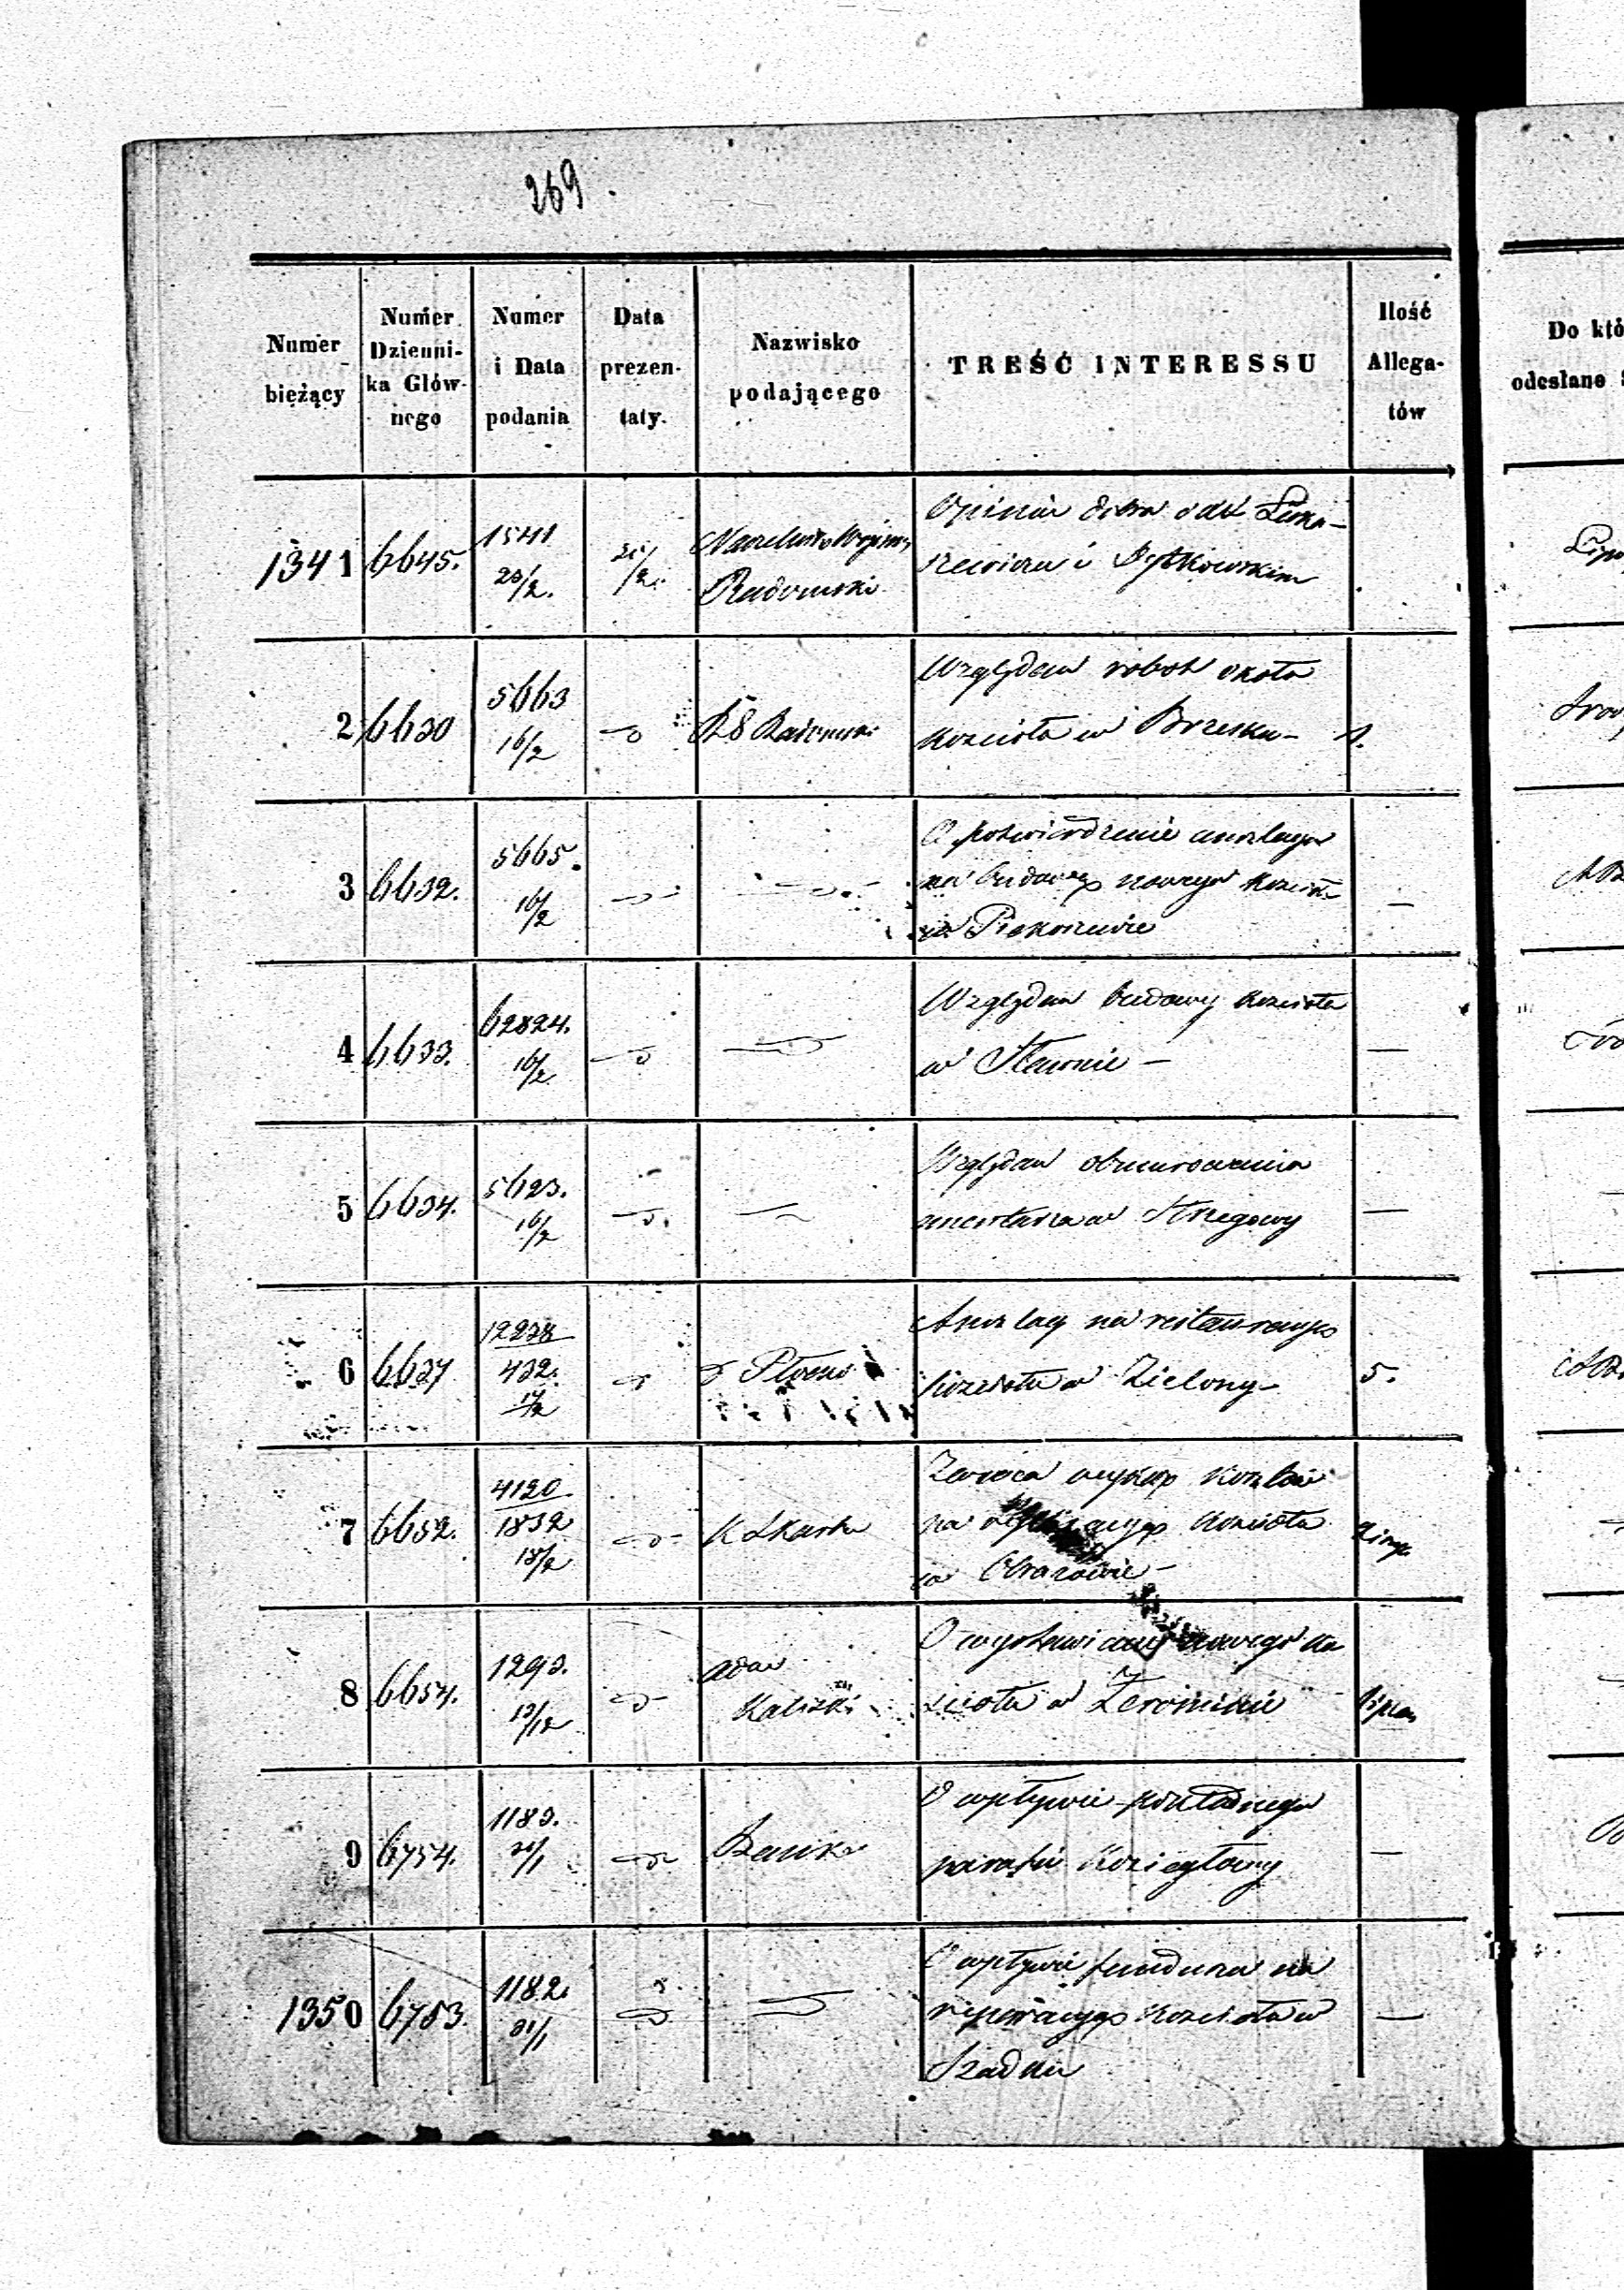 269.
Numer bieżący
Numer Dzienni-ka Głów-nego
Numer i Data podania
Data prezen-taty.
Nazwisko podającego
TREŚĆ INTERESSU
Ilość Allega-tów
Do któ
odesłano
1341 6645. 1541 20/2. 21/2. Naczelnik Wojenny Radomski
Opinia
i Rytkowskim
2 6630 5663 16/2 RG Radomski
Względem robot około
kościoła w Brzesku - 1.
3 6632. 5665. 16/2
O potwierdzenie anszlagu
na budowę nowego kościoła
w Piekoszewie —
4 6633. 62824. 16/2
Względem budowy kościoła
w Sławnie — —
5 6634. 5623. 16/2
Względem obmurowania
cmentarza w Strzegowy —
6 6637 12238 432. 17/2 Płocki
Anszlag na restauracyą
kościoła w Zielony - 5.
7 6652. 4120 1832 18/2 K Skarbu
Zwraca wykaz kosztów
na kościoła
w Obrazowie -
8 6654. 1293. 13/12 Adm Kaliski
O wystawienie nowego ko
ścioła w Żerominie
9 6754. 1183. 31/1 Bank
O wpływie
parafii Koziegłowy —
1350 6753. 1182. 31/1
O wpływie funduszu na
reperacyą kościoła w —
Szadku